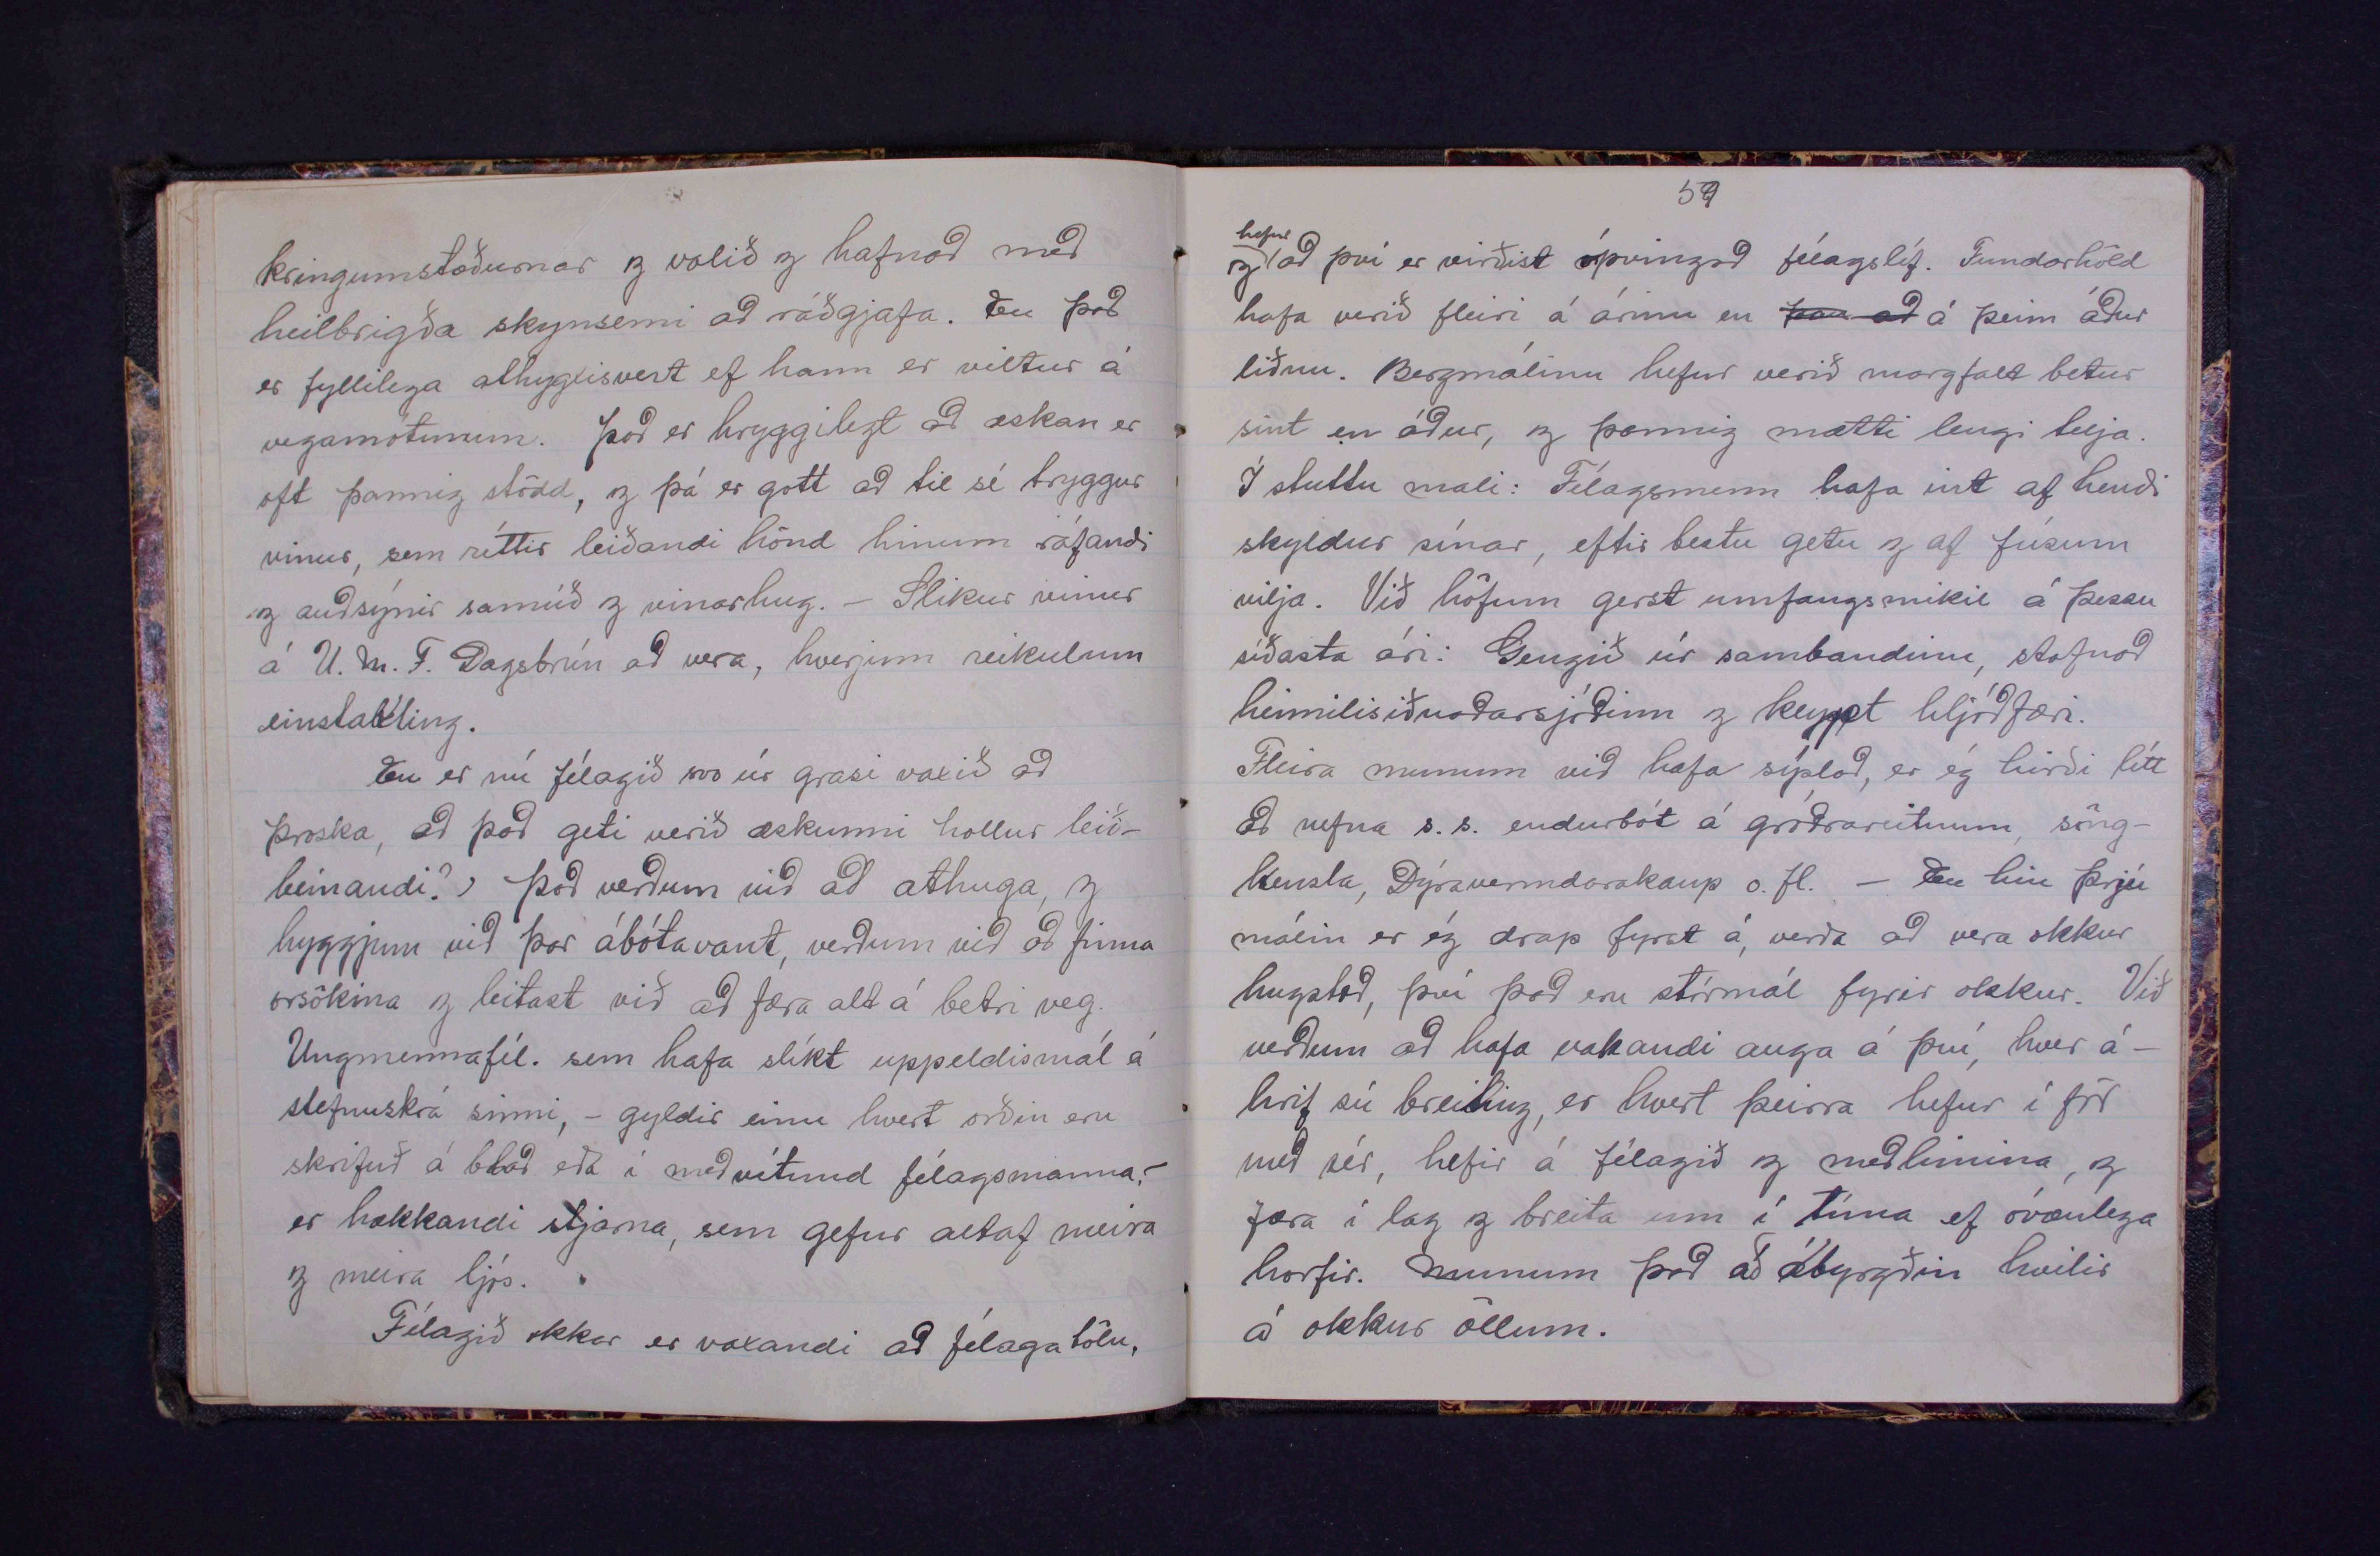 kringumstöðurnar og valið og hafnað með
heilbrigða skynsemi að ráðgjafa. En það
er fyllilega athyglisvert ef hann er viltur á
vegamótunum. Það er hryggilegt að æskan er
oft þannig stödd, og þá er gott að til sé tryggur
vinur, sem réttir leiðandi hönd hinum ráfandi
og auðsýnir samúð og vinarhug. – Slíkur vinur
á U. M. F. Dagsbrún að vera, hverjum reikulum
einstakling.
En er nú félagið svo úr grasi vaxið að
þroska, að það geti verið æskunni hollur leið-
beinandi? Það verðum við að athuga, og
hyggjum við þar ábótavant, verðum við að finna
orsökina og leitast við að færa alt á betri veg.
Ungmennafél. sem hafa slíkt uppeldismál á
stefnuskrá sinni, – gyldir einu hvert orðin eru
skrifuð á blað eða í meðvitund félagsmanna, –
er hækkandi stjarna, sem gefur altaf meira
og meira ljós.
Félagið okkar er vaxandi að félagatölu,
59
hefur
og að því er virðist óþvingað félagslíf. Fundarhöld
hafa verið fleiri á árinu en þau að á þeim áður
liðnu. Bergmálinu hefur verið margfalt betur
sint en áður, og þannig mætti lengi telja.
Í stuttu mali: Félagsmenn hafa int af hendi
skyldur sínar, eftir bestu getu og af fúsum
vilja. Við höfum gerst umfangsmikil á þessu
síðasta ári: Gengið úr sambandinu, stofnað
heimilisiðnaðarsjóðinn og keypt hljóðfæri.
Fleira munum við hafa sýslað, er ég hirði lítt
að nefna s. s. endurbót á gróðrareitnum, söng-
kensla, Dýraverndarakaup o. fl. – En hin þrjú
málin er ég drap fyrst á, verða að vera okkur
hugstæð, því það eru stórmál fyrir okkur. Við
verðum að hafa vakandi auga á því, hver á-
hrif sú breiting, er hvert þeirra hefur í för
með sér, hefir á félagið og meðlimina, og
færa í lag og breita um í tíma ef óvænlega
horfir. Munum það að ábyrgðin hvílir
á okkur öllum.